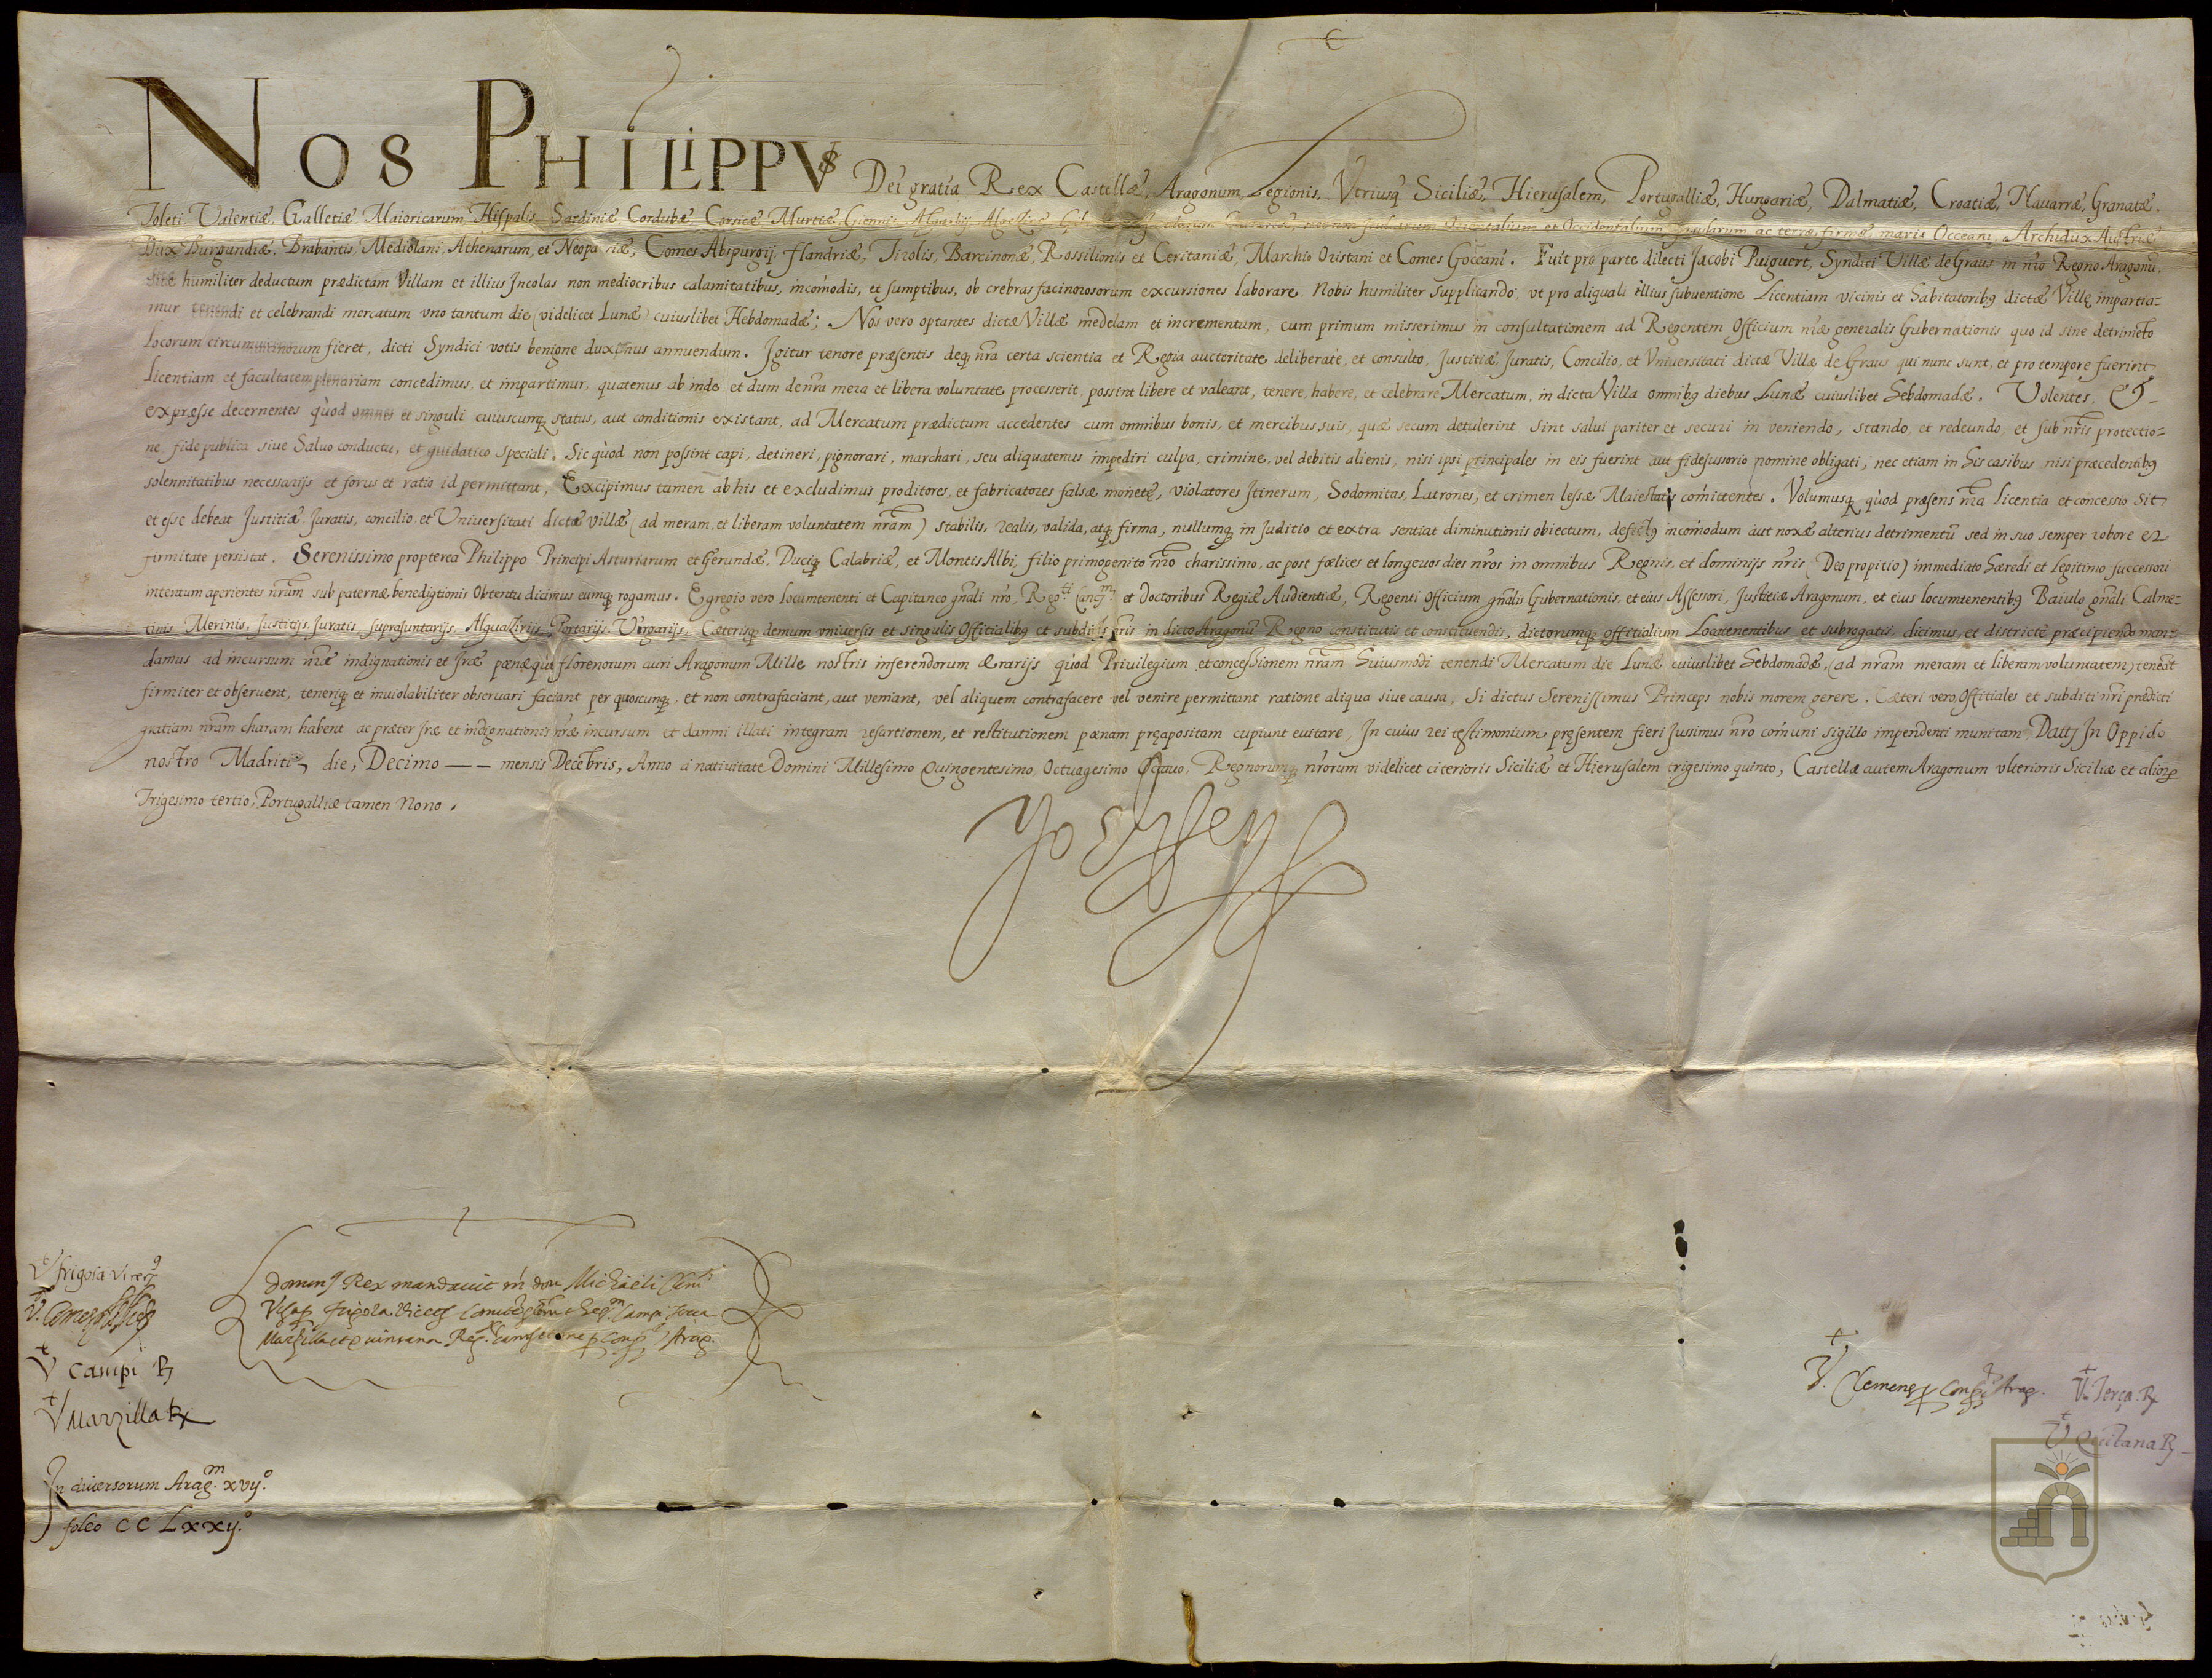 NOS PHILIPPVS Dei gratia Rex Castellæ, Aragonum, Legionis, Vtriusq̨ Siciliæ, Hierusalem, Portugalliæ, Hungariæ, Dalmatiæ, Croatiæ, Nauarræ, Granatæ,
Toleti, Valentiæ, Galletiæ, Maioricarum, Hispalis, Sardiniæ, Cordubæ, Corsicæ, Murtiæ, Giennis, Algarbij, Algeziræ, necnon Indiarum Orientalium et Occidentalium, Insularum ac terræ firmæ maris Occeani, Archidux Austriæ
Dux Burgundiæ, Brabantis, Mediolani, Athenarum, et Neopatriæ, Comes Abspurgij, flandriæ, Tirolis, Barcinonæ, Rossilionis et Ceritaniæ, Marchio Oristani et Comes Gocçani. Fuit pro parte dilecti Jacobi Puiguert, Syndici Villæ de Graus in nr̄o Regno Aragonū,
sitæ humiliter deductum prædictam Villam et illius Jncolas non mediocribus calamitatibus, incom̄odis, et sumptibus, ob crebras facinorosorum excursiones laborare. Nobis humiliter supplicando, vt pro aliquali illius subuentione Licentiam vicinis et habitatoribꝰ dictæ Villę impartia-
mur tenendi et celebrandi mercatum vno tantum die (videlicet Lunæ) cuiuslibet Hebdomadæ; Nos vero optantes dictæ Villæ medelam et incrementum, cum primum misserimus in consultationem ad Regentem Officium nr̄æ generalis Gubernationis quo id sine detrimēto
locorum circumuicinorum fieret, dicti Syndici votis benigne duximus annuendum. Igitur tenore præsentis deq̨ nr̄a certa scientia et Regia auctoritate deliberate, et consulto. Justitiæ, Juratis, Concilio, et Vniuersitati dictæ Villæ de Graus qui nunc sunt, et pro tempore fuerint
Licentiam et facultatem plenariam concedimus, et impartimur, quatenus ab inde et dum de nr̄a mera et libera voluntate processerit, possint libere et valeant, tenere, habere, et celebrare Mercatum, in dicta Villa omnibꝰ diebus Lunæ cuiuslibet hebdomadæ. Volentes, &
expræsse decernentes quòd omnes et singuli cuiuscumq̨ status, aut conditionis existant, ad Mercatum prædictum accedentes cum omnibus bonis, et mercibus suis, quæ secum detulerint sint salui pariter et securi in veniendo, stando, et redeundo, et sub nr̄is protectio-
ne, fide publica siue Saluo conductu, et guidatico speciali. Sic quòd non possint capi, detineri, pignorari, marchari, seu aliquatenus impediri culpa, crimine, vel debitis alienis, nisi ipsi principales in eis fuerint aut fidejussorio nomine obligati; nec etiam in his casibus nisi præcedentibꝰ
solennitatibus necessarijs et forus et ratio id permittant, Excipimus tamen ab his et excludimus proditores, et fabricatores falsæ monetę, violatores Jtinerum, Sodomitas, Latrones, et crimen lessæ Maiestatis com̄ittentes. Volumusq̨ quòd præsens nr̄a licentia et concessio sit
et esse debeat Justitiæ, Juratis, concilio, et Vniuersitati dictæ villæ (ad meram, et liberam voluntatem nr̄am) stabilis, realis, valida, atq̨ firma, nullumq̨ in Juditio et extra sentiat diminutionis obiectum, defectꝰ incom̄odum aut noxæ alterius detrimentū sed in suo semper robore et
firmitate persistat. Serenissimo propterea Philippo Principi Asturiarum et Gerundæ, Duciq̨ Calabriæ, et Montis Albi, filio primogenito nr̄o charissimo, ac post fælices et longeuos dies nr̄os in omnibus Regnis, et dominijs nr̄is (Deo propitio) immediato hæredi et legitimo successori
intentum aperientes nr̄um sub paternæ benedigtionis obtentu dicimus eumq̨ rogamus. Egregio vero locumtenenti et Capitaneo gn̄ali nr̄o, et doctoribus Regiæ Audientiæ, Regenti Officium gn̄alis Gubernationis, et eius Assessori, Justitiæ Aragonum, et eius locumtenentibꝰ Baiulo gn̄ali Calme-
tinis Merinis, Justitijs, Juratis, suprajuntarijs, Alguazirijs, Portarijs, Virgarijs, Cæterisq̨ demum vniuersis et singulis Offitialibꝰ et subditis nr̄is in dicto Aragonū Regno constitutis et constituendis, dictorumq̨ offitialium Locatenentibus et subrogatis, dicimus, et districtè præcipiendo man-
damus ad incursum nr̄æ indignationis et Jræ pœnæque florenorum auri Aragonum Mille nostris inferendorum ærarijs quòd Priuilegium, et concessionem nr̄am huiusmodi tenendi Mercatum die Lunæ cuiuslibet hebdomadæ, (ad nr̄am meram et liberam voluntatem) teneāt
firmiter et obseruent, teneriq̨ et inuiolabiliter obseruari faciant per quoscunq̨, et non contrafaciant, aut veniant, vel aliquem contrafacere vel venire permittant ratione aliqua siue causa, Si dictus Serenissimus Princeps nobis morem gerere. Cæteri vero, Offitiales et subditi nr̄i prædicti
gratiam nr̄am charam habent ac præter Jræ et indignationis nr̄æ incursum et damni illati integram resartionem, et restitutionem pœnam pręapositam cupiunt euitare, In cuius rei testimonium pręsentem fieri Jussimus nr̄o com̄uni sigillo impendenti munitam, Datt̄ In Oppido
nostro Madriti, die, Decimo —— mensis Decēbris, Anno a natiuitate Domini Millesimo Quingentesimo, Octuagesimo Octauo, Regnorumq̨ nr̄orum videlicet citerioris Siciliæ et Hierusalem trigesimo quinto, Castellæ autem Aragonum vlterioris Siciliæ et alioꝝ
Trigesimo tertio, Portugalliæ tamen Nono.
Yo El Rey
Vt frigola Vicecꝰ
V. Comes
Domin9 Rex mandauit m̄ don Michaeli
Visa p frigola Vicec Campi Terça
Marzilla et Quintana Reg. Arag.
V Campi R
V Marzilla Rx
V. Clemens p Arag.
V. Terça. R
V Quītana R
In diuersorum Arag.m xvij.o
foleo CC Lxxij.o